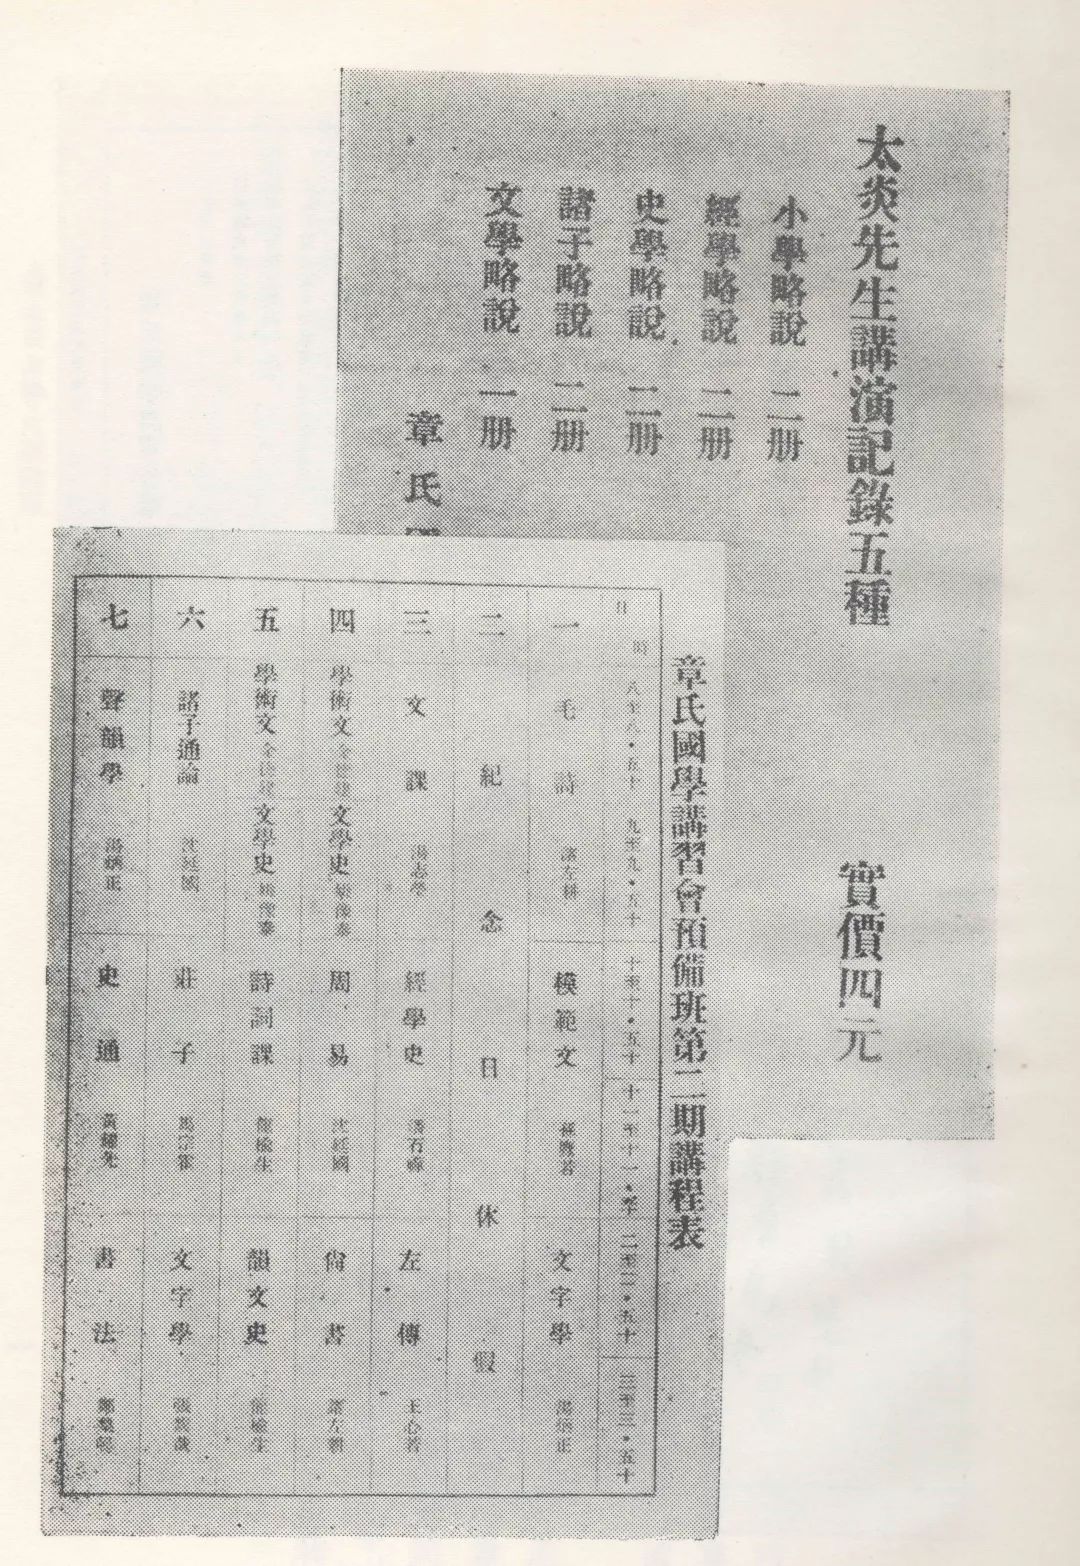 太炎先生講演記錄五種　實價四元
小學略說　二册
經學略說　二册
史學略說　二册
諸子略說　二册
文學略說　一册
章氏
章氏國學講習會預備班第二期講程表
日　時
八至八·五十
九至九·五十
十至十·五十
十一至十一·
二至二·五十
三至三·五十
一　毛詩　諸左耕　模範文　文字學　湯炳正
二　紀念日休假
三　文課　湯志瑩　經學史　潘石禪　左傳　王心若
四　學術文　金德建　文學史　姚豫泰　周易　沈延國　尙書　諸左耕
五　學術文　金德建　文學史　姚豫泰　詩詞課　龍榆生　韻文史　龍榆生
六　諸子通論　沈延國　莊子　馬宗霍　文字學
七　聲韻學　湯炳正　史通　黃耀先　書法　鄭梨邨